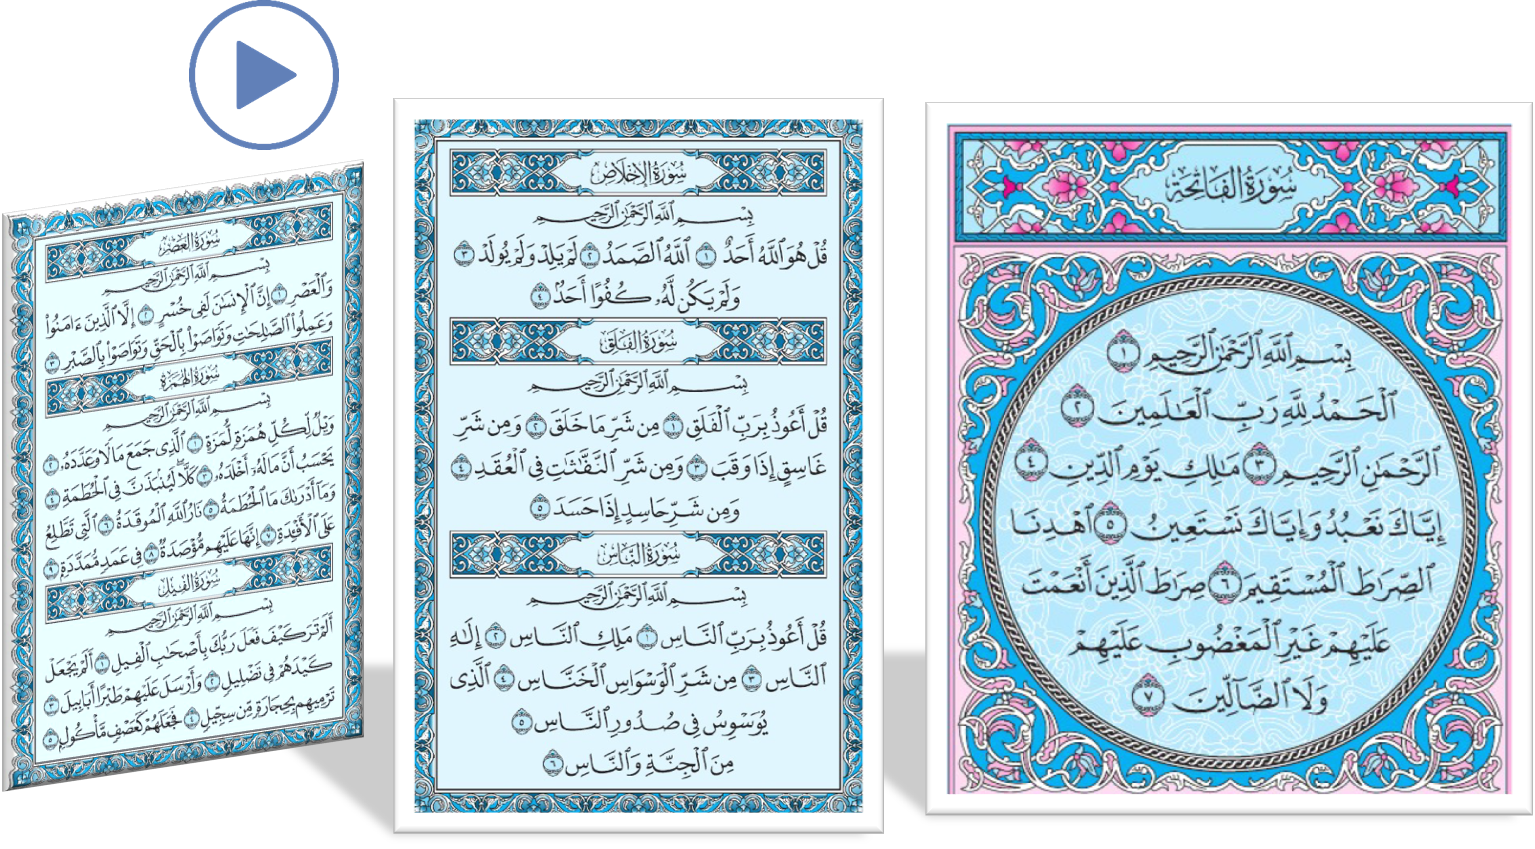 سُورَةُ الفَاتِحَةِ
بِسْمِ ٱللَّهِ ٱلرَّحْمَٰنِ ٱلرَّحِيمِ ١
ٱلْحَمْدُ لِلَّهِ رَبِّ ٱلْعَٰلَمِينَ ٢
ٱلرَّحْمَٰنِ ٱلرَّحِيمِ ٣ مَٰلِكِ يَوْمِ ٱلدِّينِ ٤
إِيَّاكَ نَعْبُدُ وَإِيَّاكَ نَسْتَعِينُ ٥ ٱهْدِنَا
ٱلصِّرَٰطَ ٱلْمُسْتَقِيمَ ٦ صِرَٰطَ ٱلَّذِينَ أَنْعَمْتَ
عَلَيْهِمْ غَيْرِ ٱلْمَغْضُوبِ عَلَيْهِمْ
وَلَا ٱلضَّآلِّينَ ٧
سُورَةُ الإِخْلَاصِ
بِسْمِ ٱللَّهِ ٱلرَّحْمَٰنِ ٱلرَّحِيمِ
قُلْ هُوَ ٱللَّهُ أَحَدٌ ١ ٱللَّهُ ٱلصَّمَدُ ٢ لَمْ يَلِدْ وَلَمْ يُولَدْ ٣
وَلَمْ يَكُن لَّهُۥ كُفُوًا أَحَدٌۢ ٤
سُورَةُ الفَلَقِ
بِسْمِ ٱللَّهِ ٱلرَّحْمَٰنِ ٱلرَّحِيمِ
قُلْ أَعُوذُ بِرَبِّ ٱلْفَلَقِ ١ مِن شَرِّ مَا خَلَقَ ٢ وَمِن شَرِّ
غَاسِقٍ إِذَا وَقَبَ ٣ وَمِن شَرِّ ٱلنَّفَّٰثَٰتِ فِى ٱلْعُقَدِ ٤
وَمِن شَرِّ حَاسِدٍ إِذَا حَسَدَ ٥
سُورَةُ النَّاسِ
بِسْمِ ٱللَّهِ ٱلرَّحْمَٰنِ ٱلرَّحِيمِ
قُلْ أَعُوذُ بِرَبِّ ٱلنَّاسِ ١ مَلِكِ ٱلنَّاسِ ٢ إِلَٰهِ
ٱلنَّاسِ ٣ مِن شَرِّ ٱلْوَسْوَاسِ ٱلْخَنَّاسِ ٤ ٱلَّذِى
يُوَسْوِسُ فِى صُدُورِ ٱلنَّاسِ ٥
مِنَ ٱلْجِنَّةِ وَٱلنَّاسِ ٦
سُورَةُ العَصْرِ
بِسْمِ ٱللَّهِ ٱلرَّحْمَٰنِ ٱلرَّحِيمِ
وَٱلْعَصْرِ ١ إِنَّ ٱلْإِنسَٰنَ لَفِى خُسْرٍ ٢ إِلَّا ٱلَّذِينَ ءَامَنُوا۟
وَعَمِلُوا۟ ٱلصَّٰلِحَٰتِ وَتَوَاصَوْا۟ بِٱلْحَقِّ وَتَوَاصَوْا۟ بِٱلصَّبْرِ ٣
سُورَةُ الهُمَزَةِ
بِسْمِ ٱللَّهِ ٱلرَّحْمَٰنِ ٱلرَّحِيمِ
وَيْلٌ لِّكُلِّ هُمَزَةٍ لُّمَزَةٍ ١ ٱلَّذِى جَمَعَ مَالًا وَعَدَّدَهُۥ ٢
يَحْسَبُ أَنَّ مَالَهُۥٓ أَخْلَدَهُۥ ٣ كَلَّا لَيُنۢبَذَنَّ فِى ٱلْحُطَمَةِ ٤
وَمَآ أَدْرَىٰكَ مَا ٱلْحُطَمَةُ ٥ نَارُ ٱللَّهِ ٱلْمُوقَدَةُ ٦ ٱلَّتِى تَطَّلِعُ
عَلَى ٱلْأَفْـِٔدَةِ ٧ إِنَّهَا عَلَيْهِم مُّؤْصَدَةٌ ٨ فِى عَمَدٍ مُّمَدَّدَةٍۭ ٩
سُورَةُ الفِيلِ
بِسْمِ ٱللَّهِ ٱلرَّحْمَٰنِ ٱلرَّحِيمِ
أَلَمْ تَرَ كَيْفَ فَعَلَ رَبُّكَ بِأَصْحَٰبِ ٱلْفِيلِ ١ أَلَمْ يَجْعَلْ
كَيْدَهُمْ فِى تَضْلِيلٍ ٢ وَأَرْسَلَ عَلَيْهِمْ طَيْرًا أَبَابِيلَ ٣
تَرْمِيهِم بِحِجَارَةٍ مِّن سِجِّيلٍ ٤ فَجَعَلَهُمْ كَعَصْفٍ مَّأْكُولٍۭ ٥